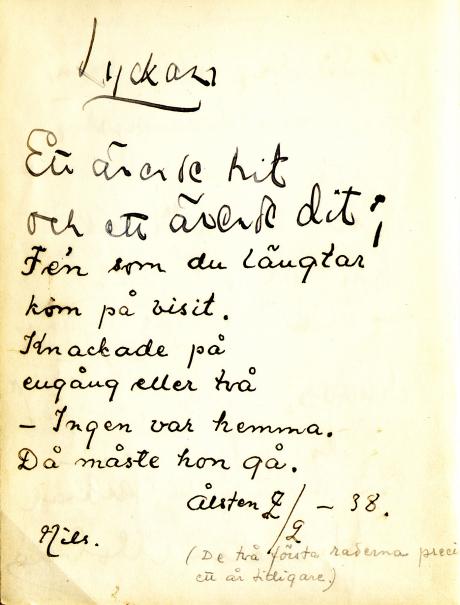 Lyckan
Ett ärende hit
och ett ärende dit;
Fe'n som du längtar
kom på visit.
Knackade på
engång eller två
– Ingen var hemma.
Då måste hon gå.
Ålsten 7/2 – 38.
Nils.
(De två första raderna preci
ett år tidligare.)